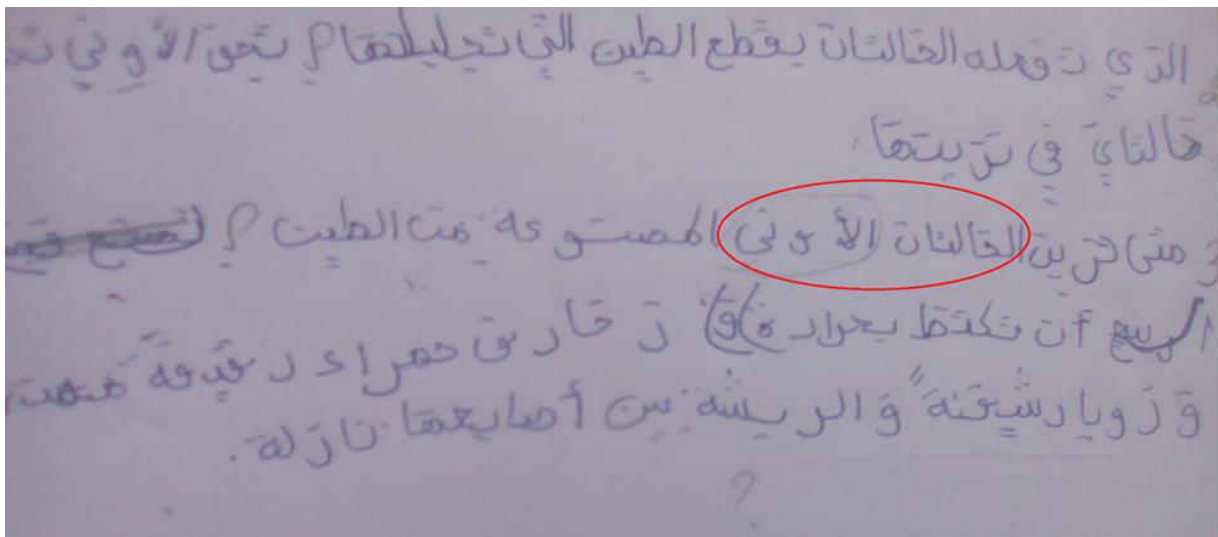 الذي تفعله الخالتان بقطع الطين التي تجلبلتها؟ تجن الأوني
خالتاي في تزيينها.
متى تزين الخالتان الأوني المصنوعة من الطين؟
الربيع أن تكتظ بجرار زخارف حمراء دقيقة
و زويا رشيقة و الريشة بين أصابعها نازلة.
?